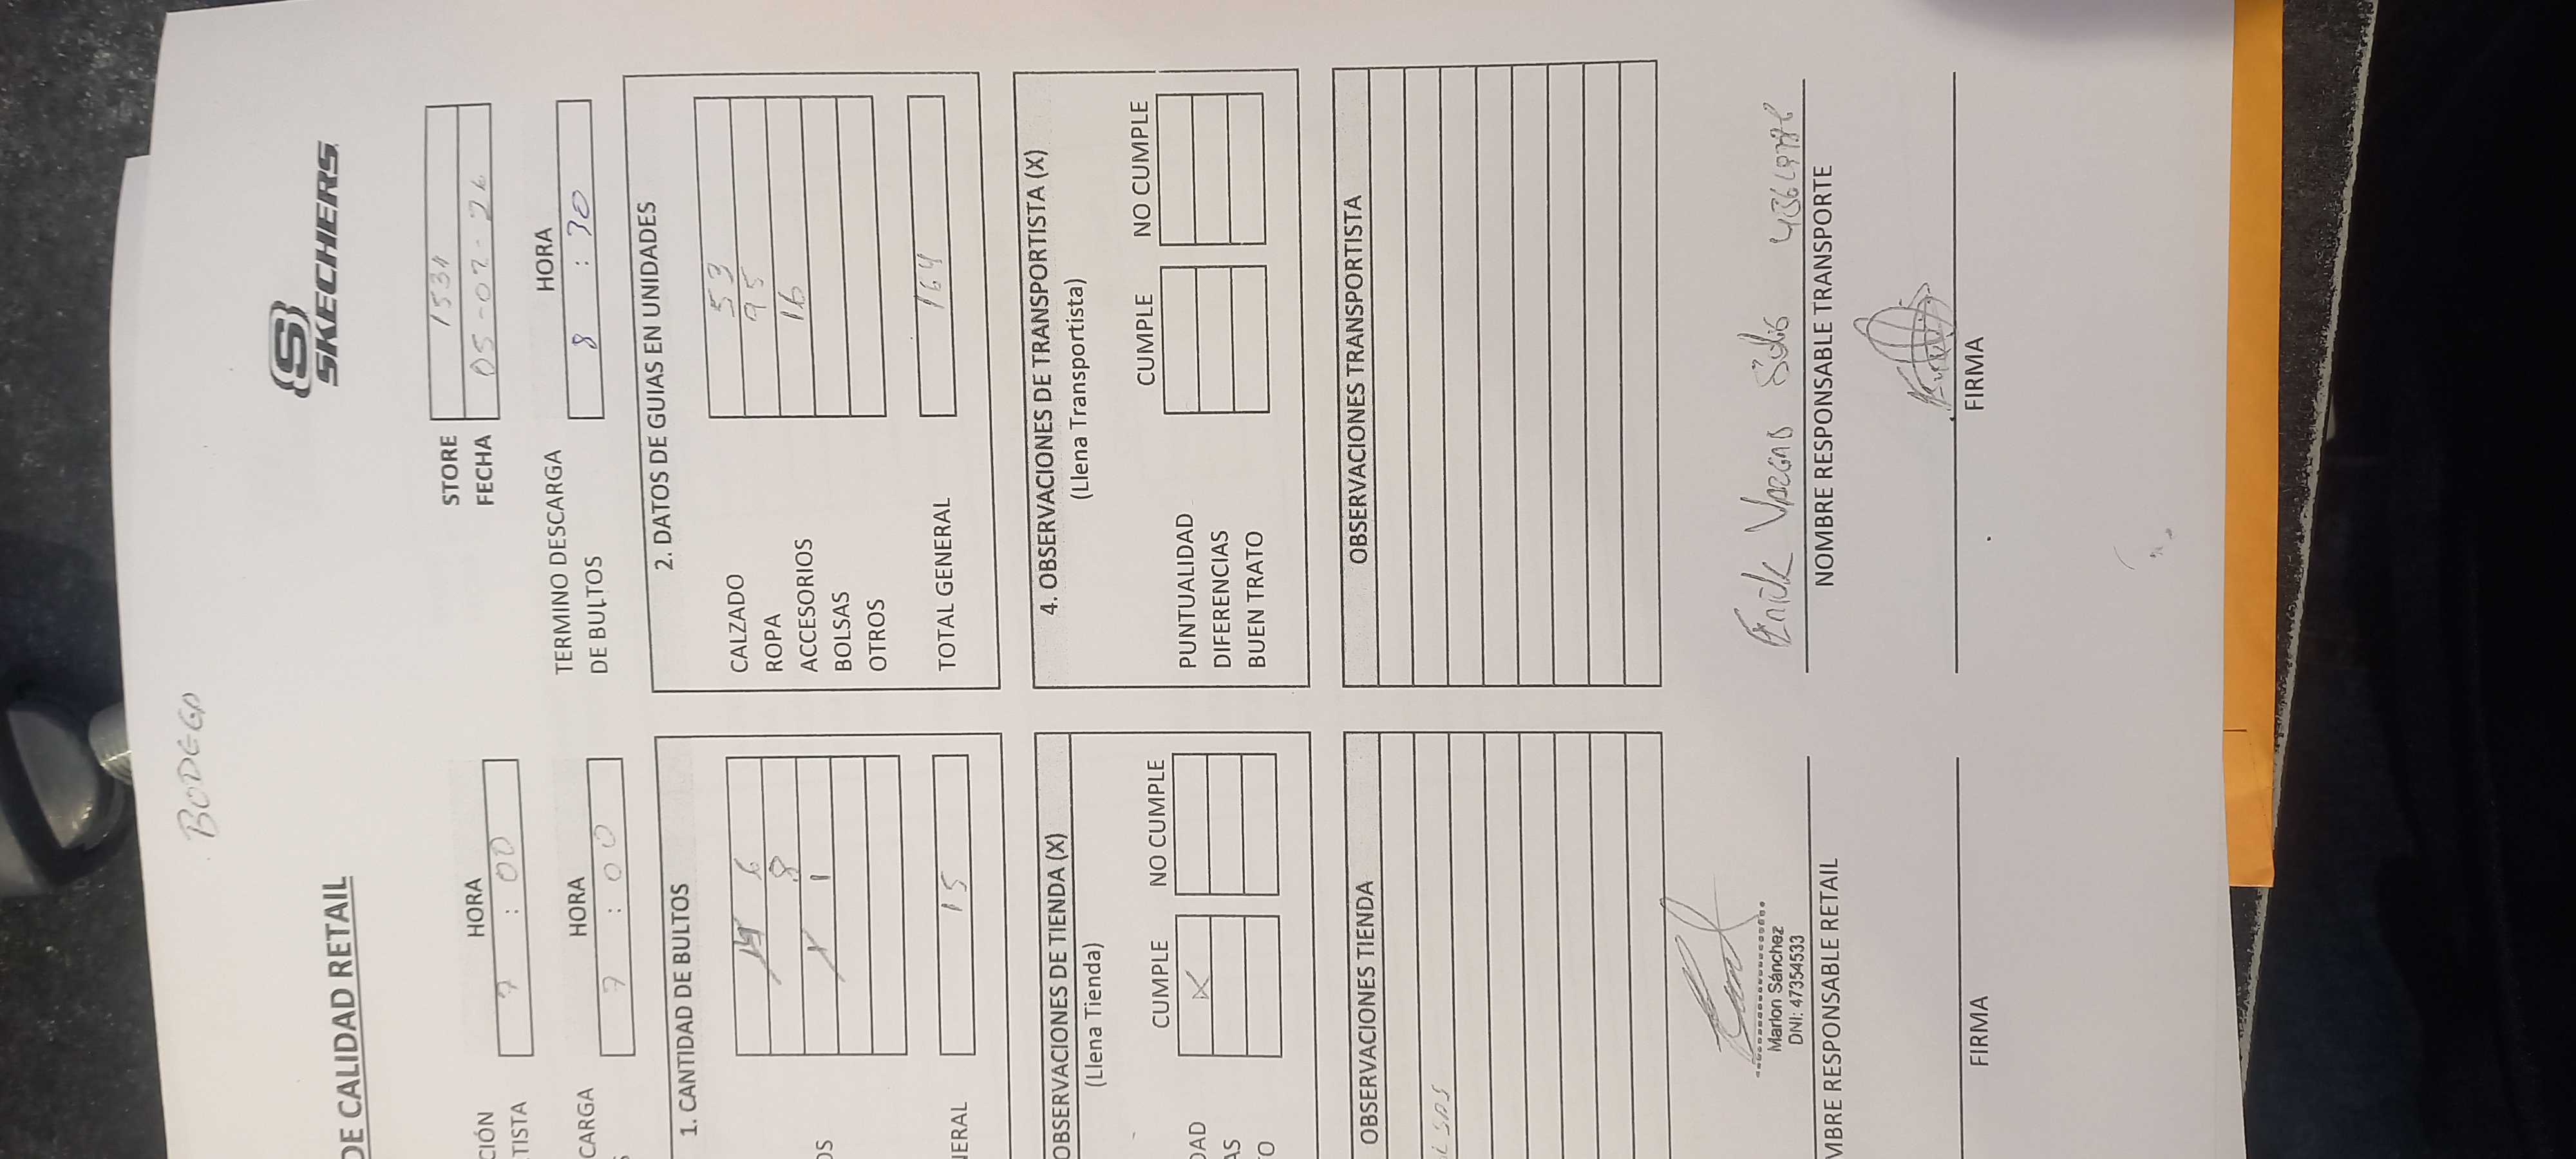 BODEGA
SKECHERS
DE CALIDAD RETAIL
STORE 1531
FECHA 05-02-26
CIÓN HORA
TISTA 7 : 00
CARGA HORA
7 : 00
TERMINO DESCARGA HORA
DE BULTOS 8 : 30
1. CANTIDAD DE BULTOS
6
8
OS 1
NERAL 15
2. DATOS DE GUIAS EN UNIDADES
CALZADO 53
ROPA 95
ACCESORIOS 16
BOLSAS
OTROS
TOTAL GENERAL 164
OBSERVACIONES DE TIENDA (X)
(Llena Tienda)
CUMPLE NO CUMPLE
DAD X
AS
O
4. OBSERVACIONES DE TRANSPORTISTA (X)
(Llena Transportista)
CUMPLE NO CUMPLE
PUNTUALIDAD
DIFERENCIAS
BUEN TRATO
OBSERVACIONES TIENDA
OBSERVACIONES TRANSPORTISTA
Marlon Sánchez
DNI: 47354533
MBRE RESPONSABLE RETAIL
FIRMA
Erick Vargas Solis
NOMBRE RESPONSABLE TRANSPORTE
FIRMA